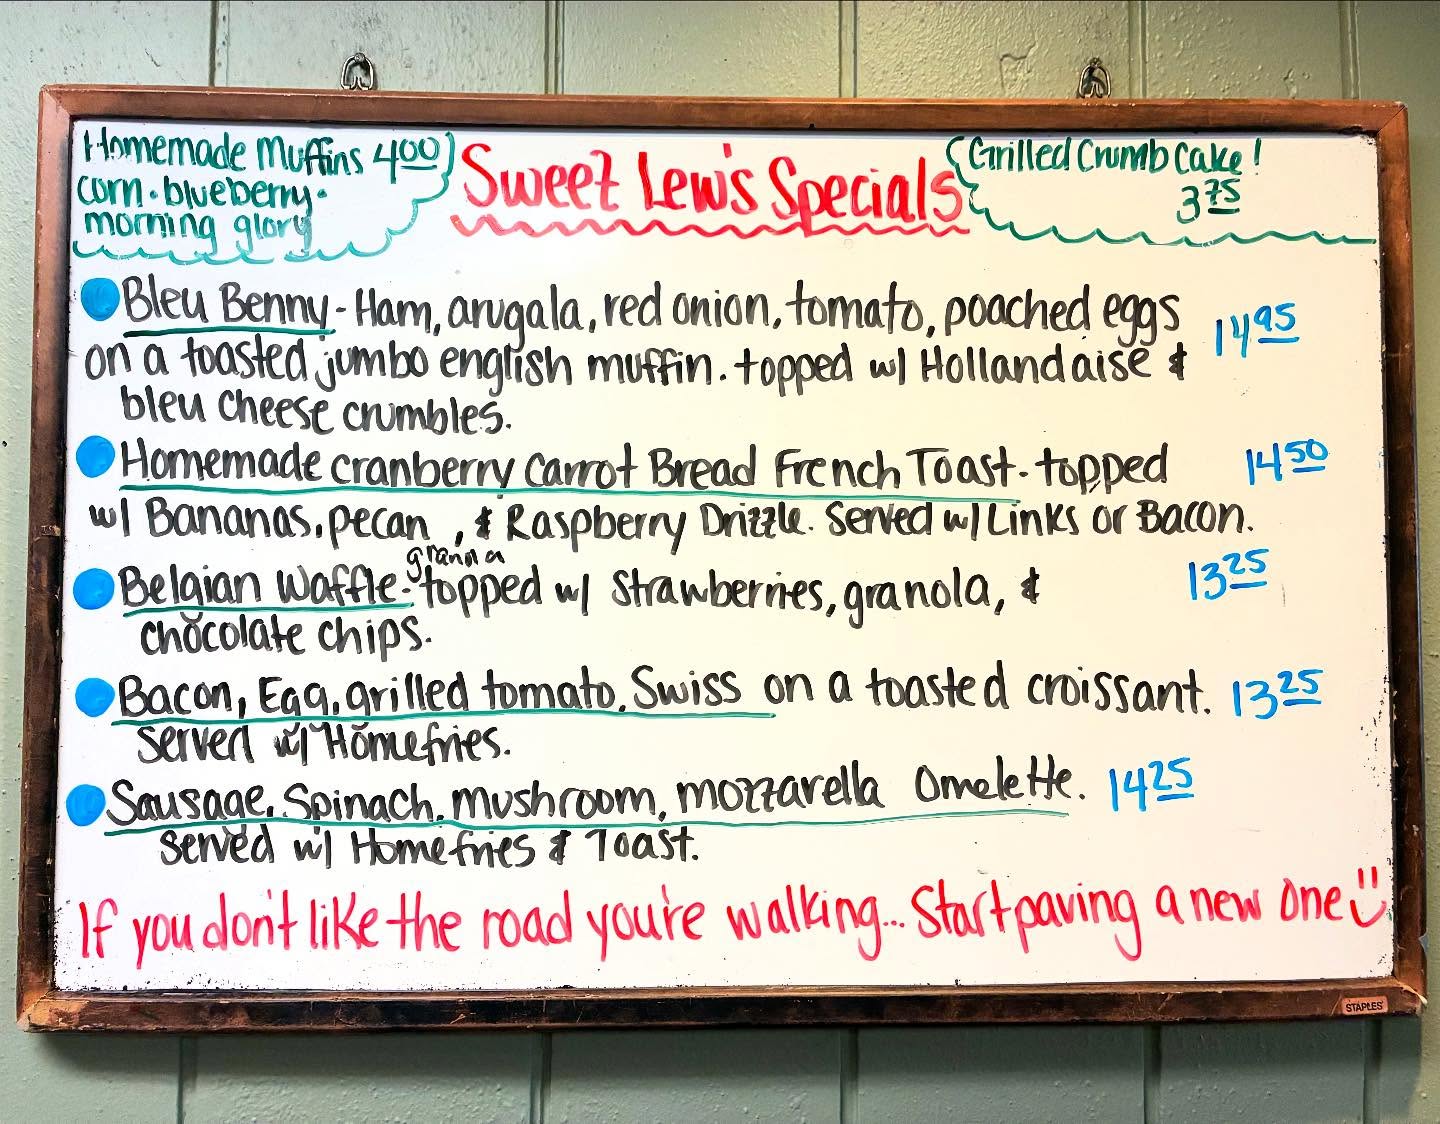 Homemade Muffins 4.00
corn · blueberry ·
morning glory
Sweet Lew's Specials
Grilled Crumb Cake!
3.75
Bleu Benny - Ham, arugala, red onion, tomato, poached eggs 14.95
on a toasted jumbo english muffin. topped w/ Hollandaise &
bleu cheese crumbles.
Homemade cranberry carrot Bread French Toast - topped 14.50
w/ Bananas, pecan , & Raspberry Drizzle. Served w/ Links or Bacon.
granola
Belgian Waffle - topped w/ Strawberries, granola, & 13.25
chocolate chips.
Bacon, Egg, grilled tomato, Swiss on a toasted croissant. 13.25
Served w/ Homefries.
Sausage, Spinach, mushroom, mozzarella Omelette. 14.25
Served w/ Homefries & Toast.
If you don't like the road you're walking... Start paving a new one
STAPLES